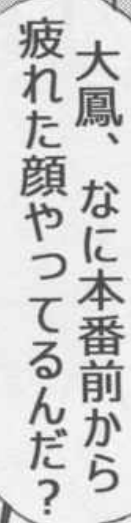 大鳳、なに本番前から
疲れた顔やってるんだ?